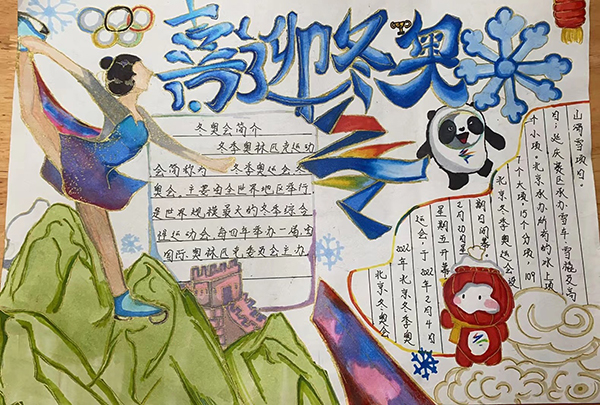 喜迎冬奥
冬奥会简介
冬季奥林匹克运动
会简称为 冬季奥运会、冬
奥会。主要由全世界地区举行
是世界规模最大的冬季综合
性运动会,每四年举办一届,由
国际奥林匹克委员会主办
北京冬奥会
2022年北京冬季奥
运会,于2022年2月4日
星期五开幕
2月20日星
期日闭幕
北京冬季奥运会设
7个大项,15个分项,109
个小项。北京承办所有的冰上项
目;延庆赛区承办雪车、雪橇及高
山滑雪项目。